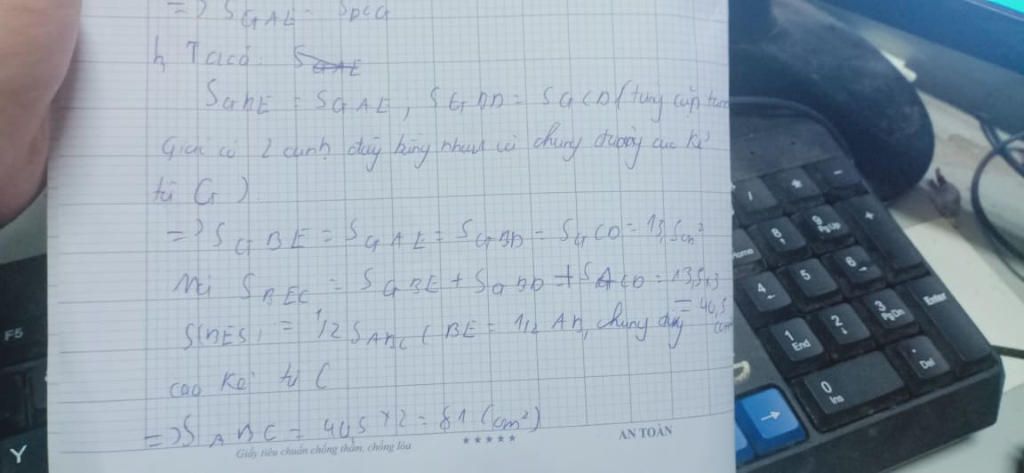 => S GAE = S DCG
b, Ta có: S GAE
S GBE = S GAE, S GBD = S GCD (từng cặp tam
giác có 2 cạnh đáy bằng nhau và chung đường cao kẻ
từ G)
=> S GBE = S GAE = S GBD = S GCD = 13,5 cm²
Mà S BEC = S GBE + S GBD + S GCD = 13,5 x 3
= 40,5
S = 1/2 S ABC ( BE = 1/2 AB, chung đường
cao kẻ từ C
=> S ABC = 40,5 x 2 = 81 (cm²)
Giấy tiêu chuẩn chống thấm, chống lóa
★★★★★
AN TOÀN
F5
Y
/
*
-
Home
8
9
PgUp
+
4
5
6
1
End
2
3
PgDn
Enter
0
Ins
.
Del